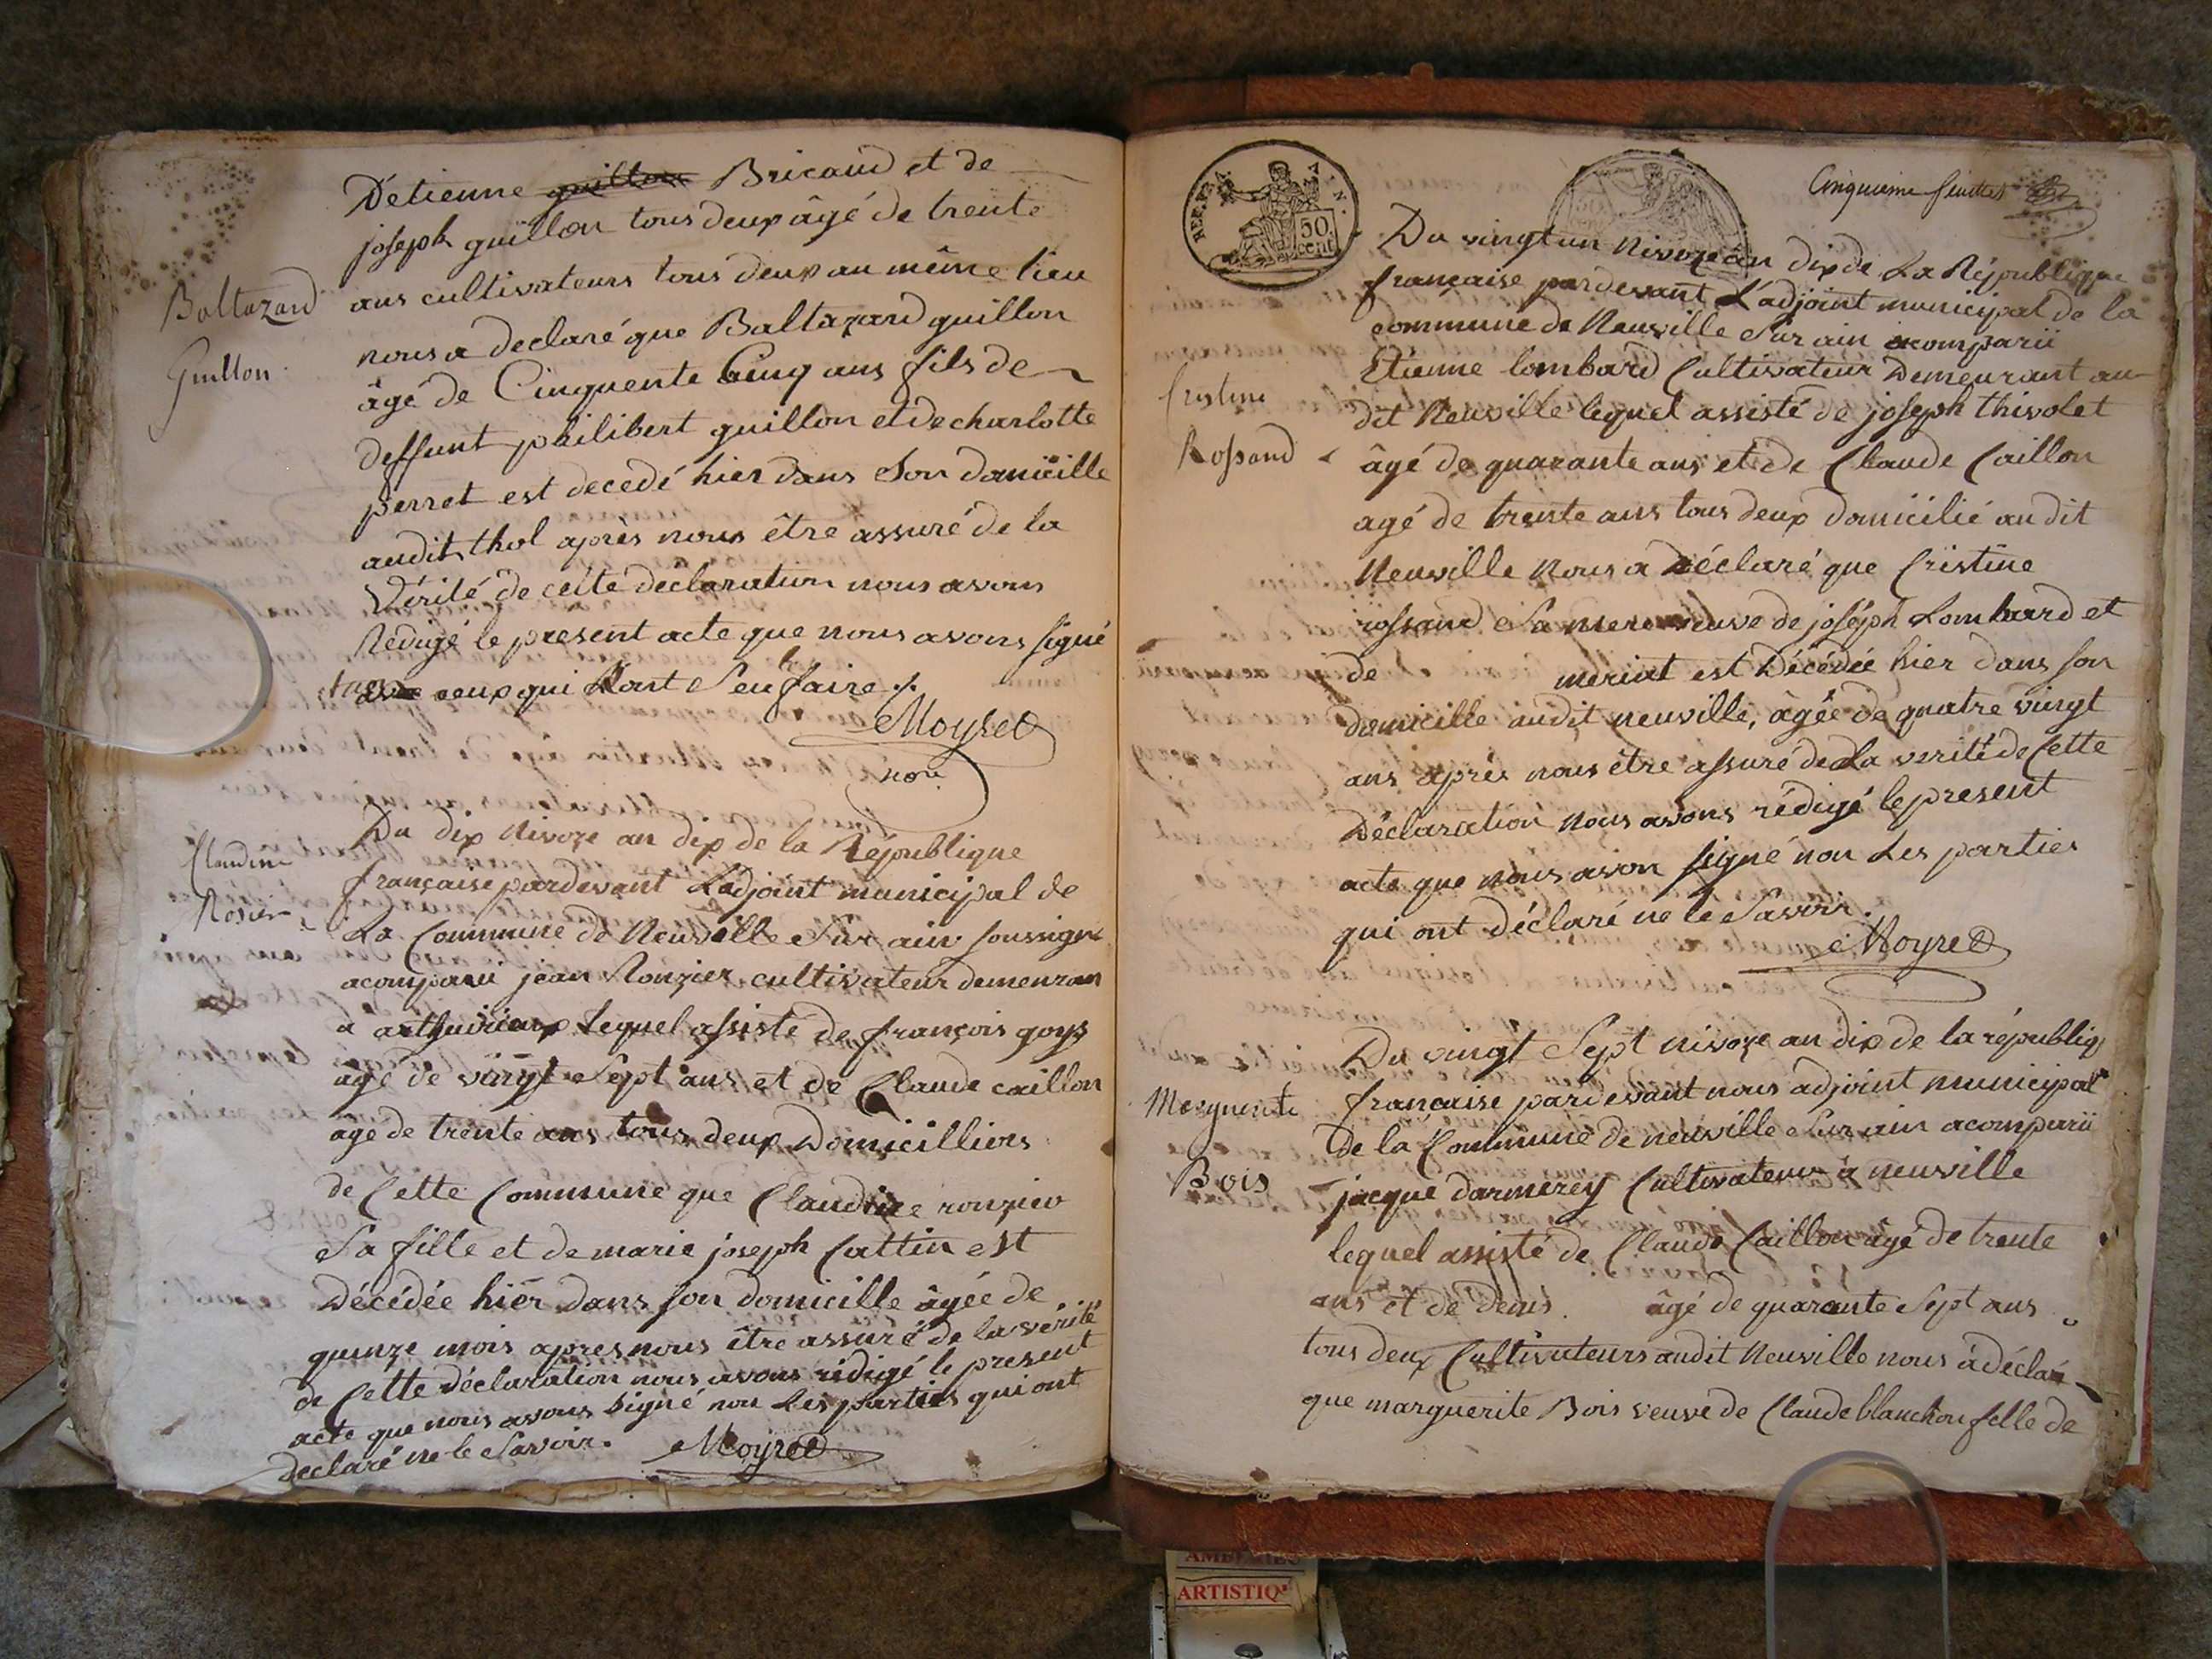 Baltazard
Guillon
D'etienne guillon Bricaud et de
joseph guillon tous deux âgé de trente
ans cultivateurs tous deux au même lieu
nous a declaré que Baltazard guillon
âgé de Cinquente Cinq ans fils de
deffunt philibert guillon et de charlotte
perret est decedé hier dans Son domicille
audit thol après nous être assuré de la
Vérité de cette déclaration nous avons
Rédigé le present acte que nous avons signé
ceux qui l'ont Seu faire ./.
Moyret
non
Claudine
Rosier
Du dix Nivoze an dix de la République
française pardevant L'adjoint municipal de
La Commune de Neuville Sur ain soussigné
acomparu jean Ronzier cultivateur demeuran
a arthuirieux lequel assisté de françois goys
âgé de vingt Sept ans et de Claude caillon
agé de trente ans tous deux Domicilliers
de Cette Commune que Claudine ronzier
Sa fille et de marie joseph Cattin est
Décédée hier dans son domicille âgée de
quinze mois apres nous être assuré de la verité
de Cette déclaration nous avons rédigé le present
acte que nous avons signé non Les parties qui ont
declaré ne le Savoir. Moyret
REP. FRA
50
cent
Cinquieme feuillet
Du vingt un Nivoze an dix de La République
française pardevant L'adjoint municipal de la
commune de Neuville Sur ain acomparû
Cristine
Rossand
Etienne lombard Cultivateur Demeurant au
dit Neuville lequel assisté de joseph thivolet
âgé de quarante ans et de Claude Caillon
agé de trente ans tous deux domicilié audit
Neuville Nous a Déclaré que Cristine
rossand Sa mere veuve de joséph Lombard et
de meriat est Décédée hier dans son
domicille audit neuville, âgée de quatre vingt
ans après nous être assuré de La verité de Cette
Déclaration Nous avons rédigé le present
acte que nous avon signé non Les parties
qui ont déclaré ne le Savoir.
Moyret
Marguerite
Bois
Du vingt Sept nivoze an dix de la républiq
française pardevant nous adjoint municipal
de la Commune de neuville Sur ain acomparû
jacque darmezey Cultivateur à neuville
lequel assisté de Claude Caillon âgé de trente
ans et de Denis âgé de quarante Sept ans
tous deux Cultivateurs audit Neuville nous à déclaré
que marguerite Bois veuve de Claude blanchon fille de
ARTISTIQ